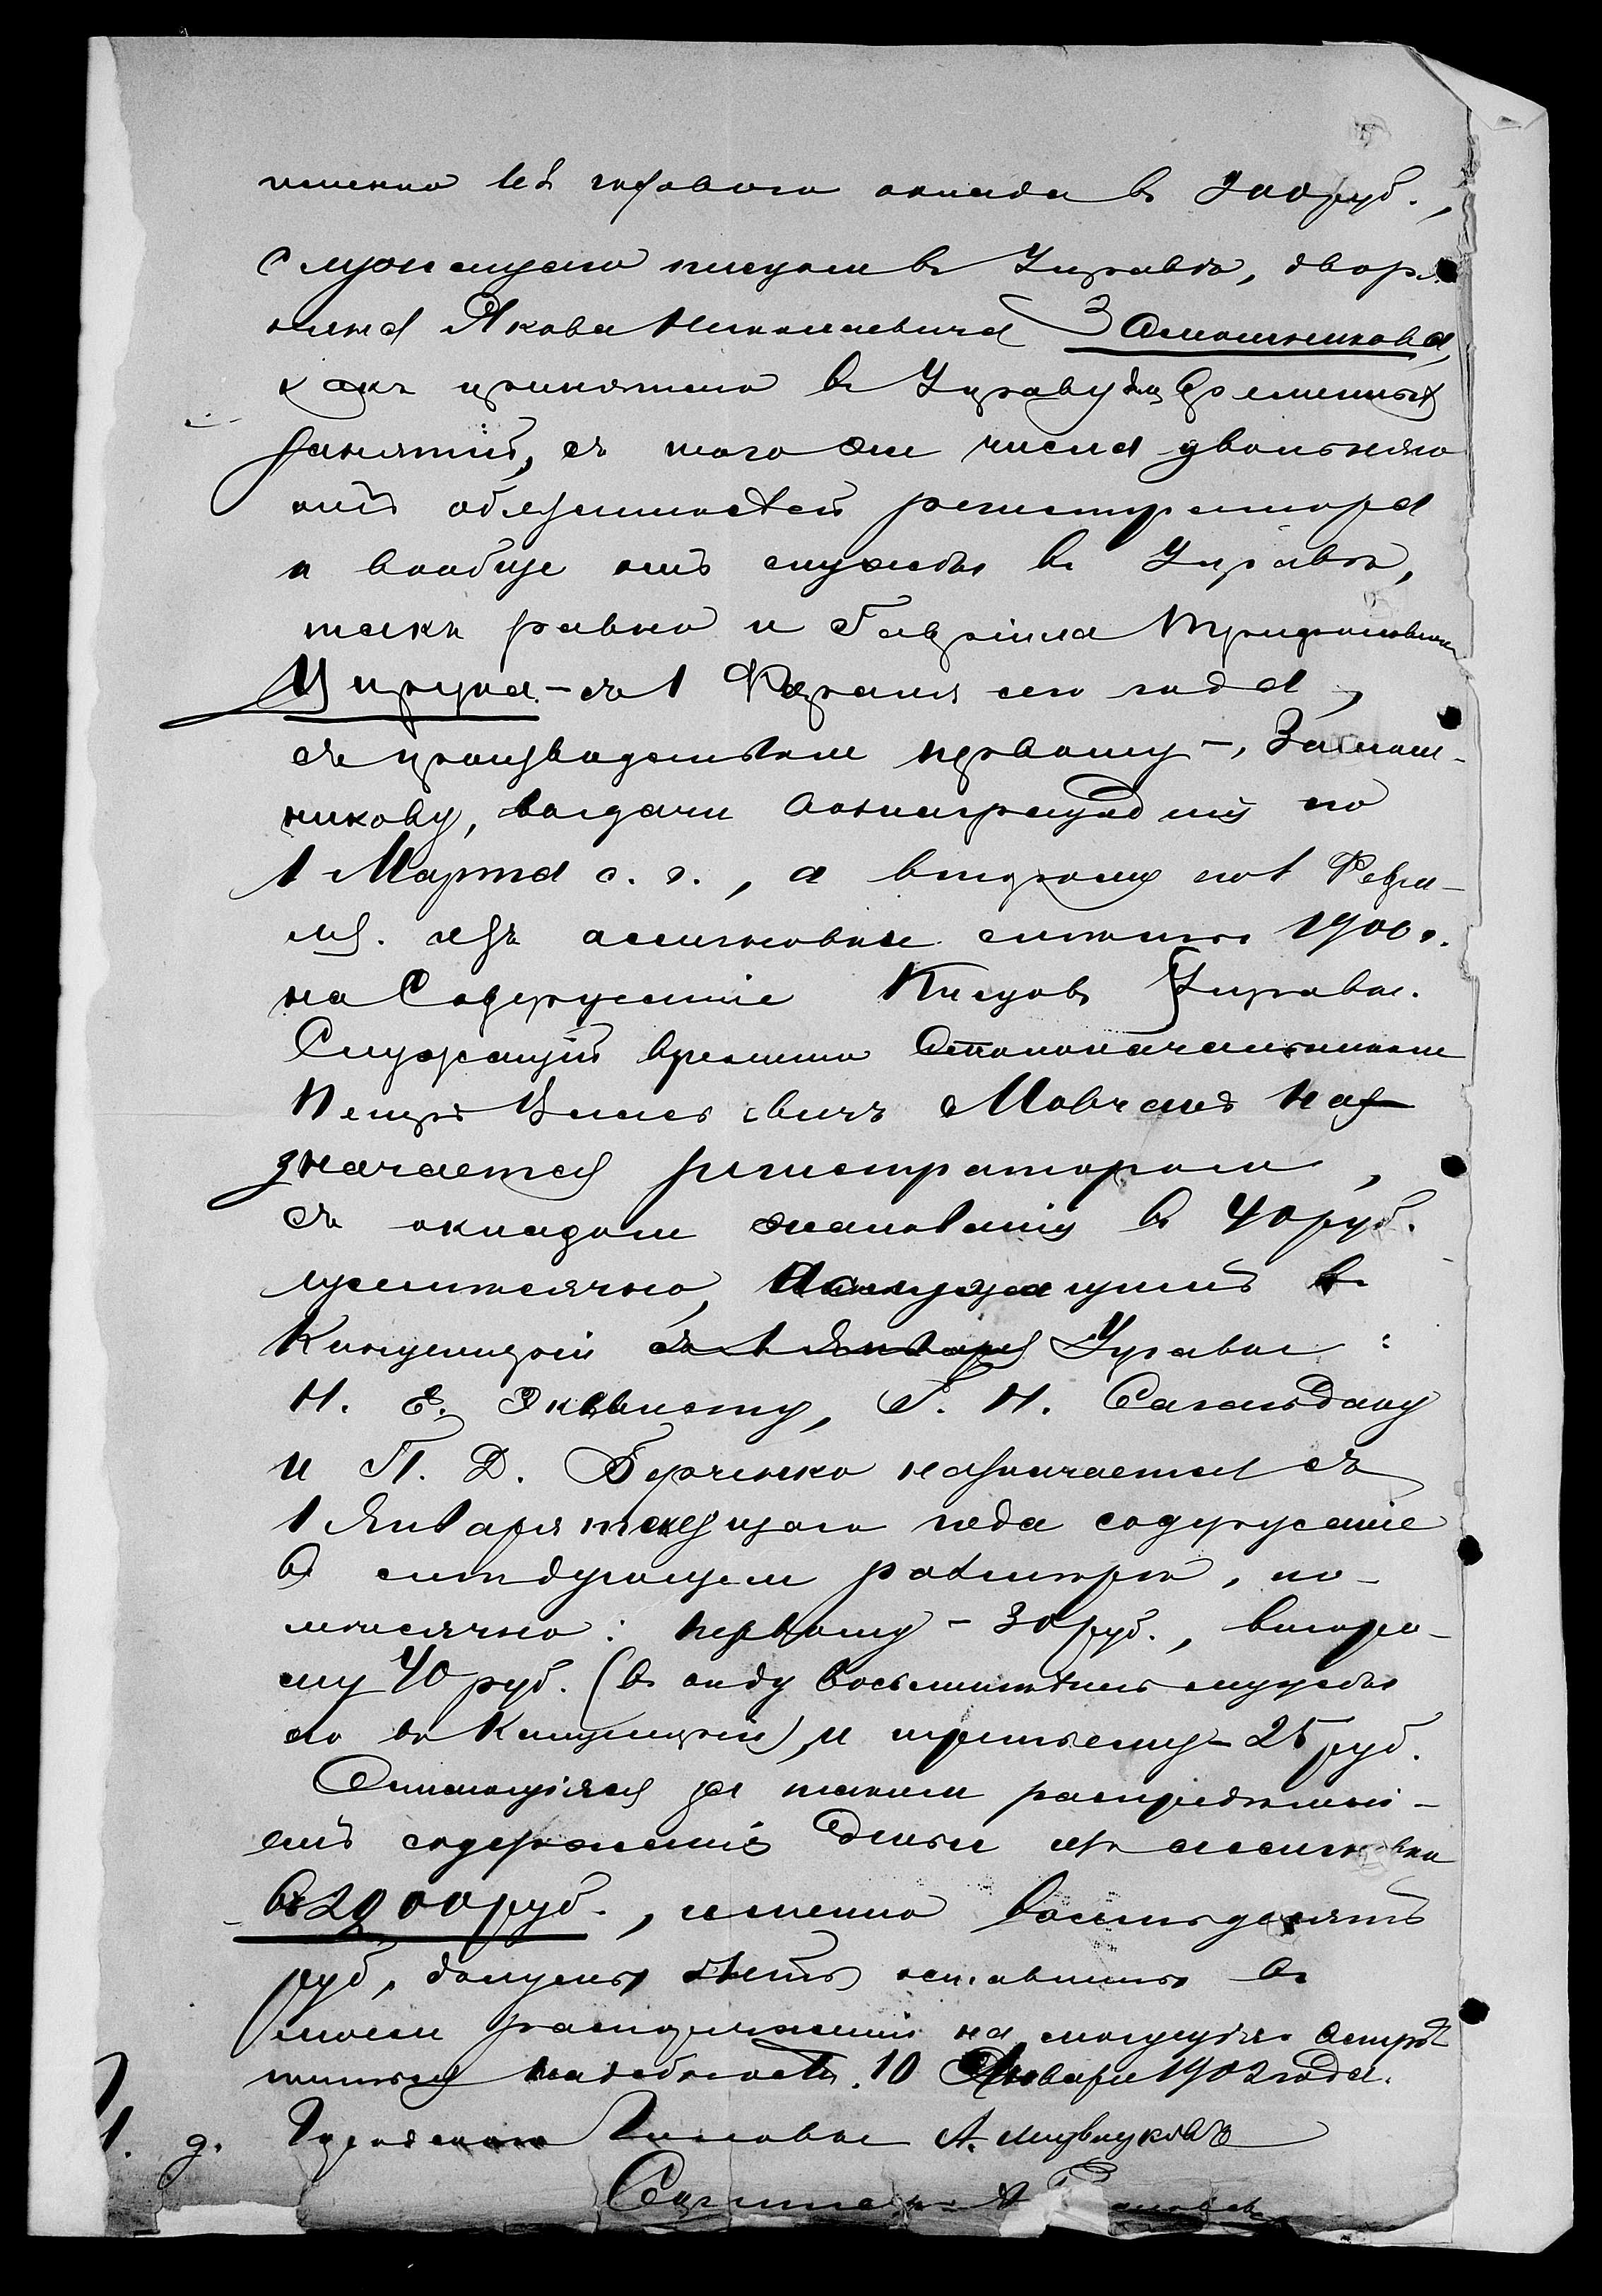 именно изъ годового оклада въ 300 руб.,
Служащаго писцомъ въ Управѣ, дворя-
нина Якова Николаевича Замошникова,
какъ принятаго въ Управу для временныхъ
занятій, съ того же числа увольняю
отъ обязанностей регистратора
и вообще отъ службы въ Управѣ,
такъ равно и Гавріила
Ципруна - съ 1 Февраля сего года,
съ производствомъ первому -, Замош-
никову, выдачи вознагражденія по
1 Марта с. г., а второму по 1 Февра-
ля. изъ ассигновки смѣты 1900 г.
на Содержаніе Писцовъ Управы.
Служащій временно Столоначальникомъ
Петръ Васильевичъ Мовчанъ на-
значается регистраторомъ,
съ окладомъ жалованія въ 40 руб.
ежемѣсячно, а служащимъ въ
Канцеляріи съ 1 Января Управы:
Н. Е. Эквисту, Г. Н. Сагайдаку
и П. Д. Бурченко назначается съ
1 Января текущаго года содержаніе
въ слѣдующемъ размѣрѣ, по-
мѣсячно: первому - 30 руб., второ-
му 40 руб. (въ виду восьмилѣтней службы
его въ Канцеляріи), и третьему - 25 руб.
Оставшіяся за такимъ распредѣлені-
емъ содержанія деньги изъ ассигновки
въ 2900 руб., именно восемьдесятъ
руб, должны быть оставлены въ
моемъ распоряженіи на могущія встрѣ-
титься надобности. 10 Января 1902 года.
И. д. Городского Головы А.
Секретарь